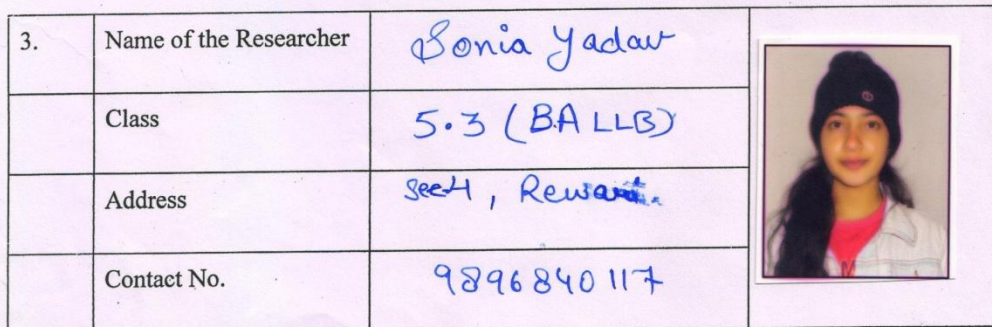 3. Name of the Researcher Sonia Yadav
Class 5.3 (BA LLB)
Address Sec-4, Rewari.
Contact No. 9896840117